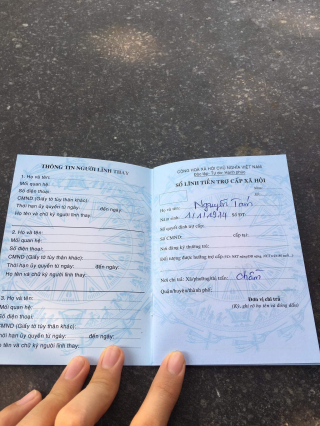 THÔNG TIN NGƯỜI LĨNH THAY
1. Họ và tên:
Mối quan hệ:
Số điện thoại:
CMND (Giấy tờ tùy thân khác):
Thời hạn ủy quyền từ ngày: đến ngày:
Họ tên và chữ ký người lĩnh thay:
2. Họ và tên:
Mối quan hệ:
Số điện thoại:
CMND (Giấy tờ tùy thân khác):
Thời hạn ủy quyền từ ngày: đến ngày:
Họ tên và chữ ký người lĩnh thay:
3. Họ và tên:
Mối quan hệ:
Số điện thoại:
CMND (Giấy tờ tùy thân khác):
Thời hạn ủy quyền từ ngày: đến ngày:
Họ tên và chữ ký người lĩnh thay:
CỘNG HÒA XÃ HỘI CHỦ NGHĨA VIỆT NAM
Độc lập - Tự do - Hạnh phúc
SỔ LĨNH TIỀN TRỢ CẤP XÃ HỘI
Họ và tên: Nguyễn
Số ĐT:
Số quyết định trợ cấp:
Số CMND: cấp tại:
Nơi đăng ký thường trú:
Đối tượng được hưởng trợ cấp
Nơi chi trả: Xã/phường/thị trấn:
Quận/huyện/thành phố:
Đơn vị chi trả
(Ký, ghi rõ họ tên và đóng dấu)